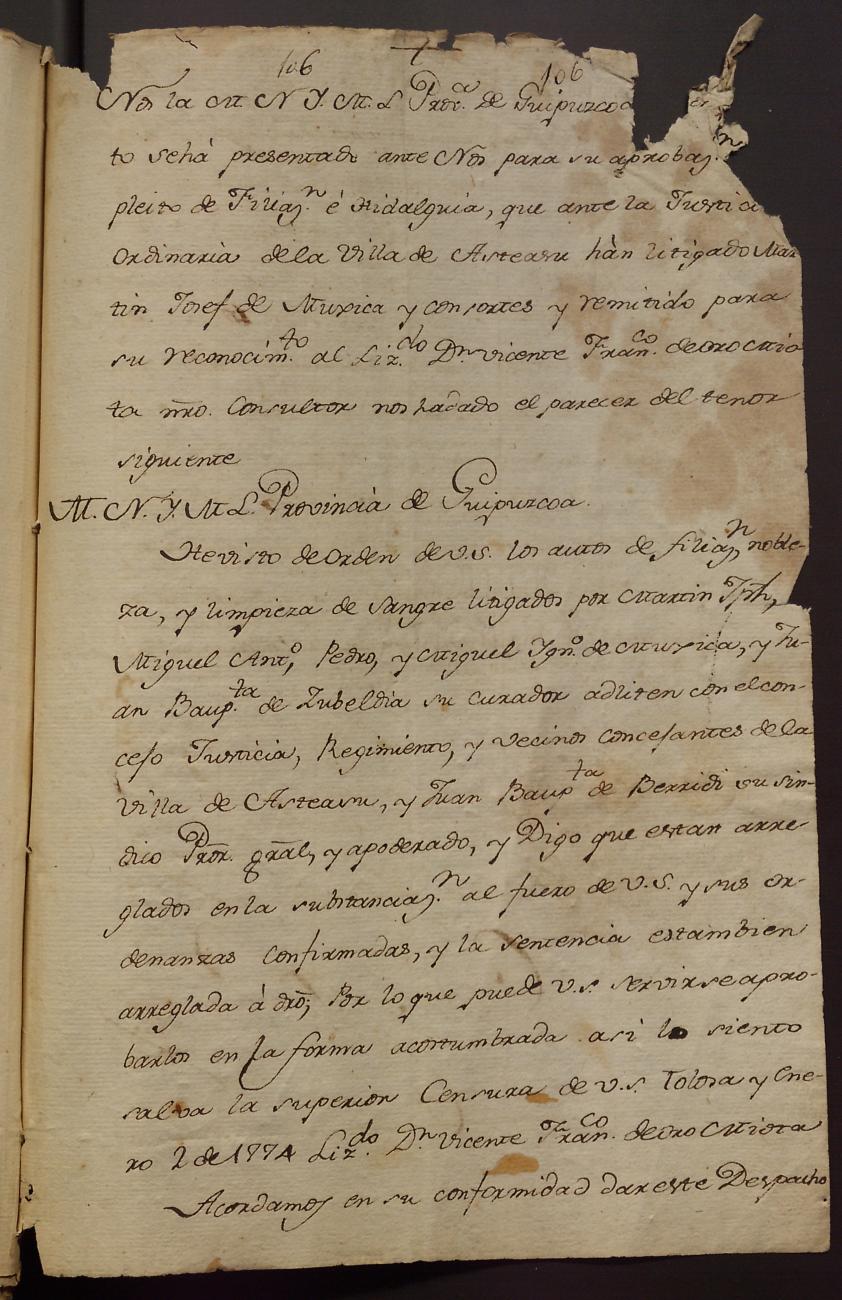 106 + 106
Nos la M. N. Y. M. L Prov.ª de Guipuzcoa
to sehà presentado ante Nos para su aprobaz.n
pleito de Filiaz.n è Hidalguia, que ante la Justicia
Ordinaria dela Villa de Asteasu hàn litigado Mar
tin Josef de Muxica y consortes y remitido para
su reconocim.to al Liz.do Dn. Vicente Fran.co de oro Mio
ta nrõ. Consultor nos hadado el parecer del tenor
siguiente
M. N. Y. M L. Provincia de Guipuzcoa.
Hevisto de orden de v.s. los autos de filiaz.n noble-
za, y limpieza de sangre litigados por Martin Jph,
Miguel Ant.o, Pedro, y Miguel Ygn.o de Muxica, y Ju-
an Baup.ta de Zubeldia su curador adliten con el con-
cejo Justicia, Regimiento, y vecinos concejantes de la
villa de Asteasu, y Juan Baup.ta de Berridi su sin-
dico Prõr. grãl, y apoderado, y Digo que estan arre-
glados en la substanciaz.n al fuero de v.s. y sus or-
denanzas confirmadas, y la sentencia estambien
arreglada à drõ; Por lo que puede v.s. servirse apro-
barlos en la forma acostumbrada asi lo siento
salva la superior Censura de v.s. Tolosa y Ene-
ro 2 de 1774 Liz.do Dn. Vicente Fran.co de oro Miota
Acordamos en su conformidad dar este Despacho